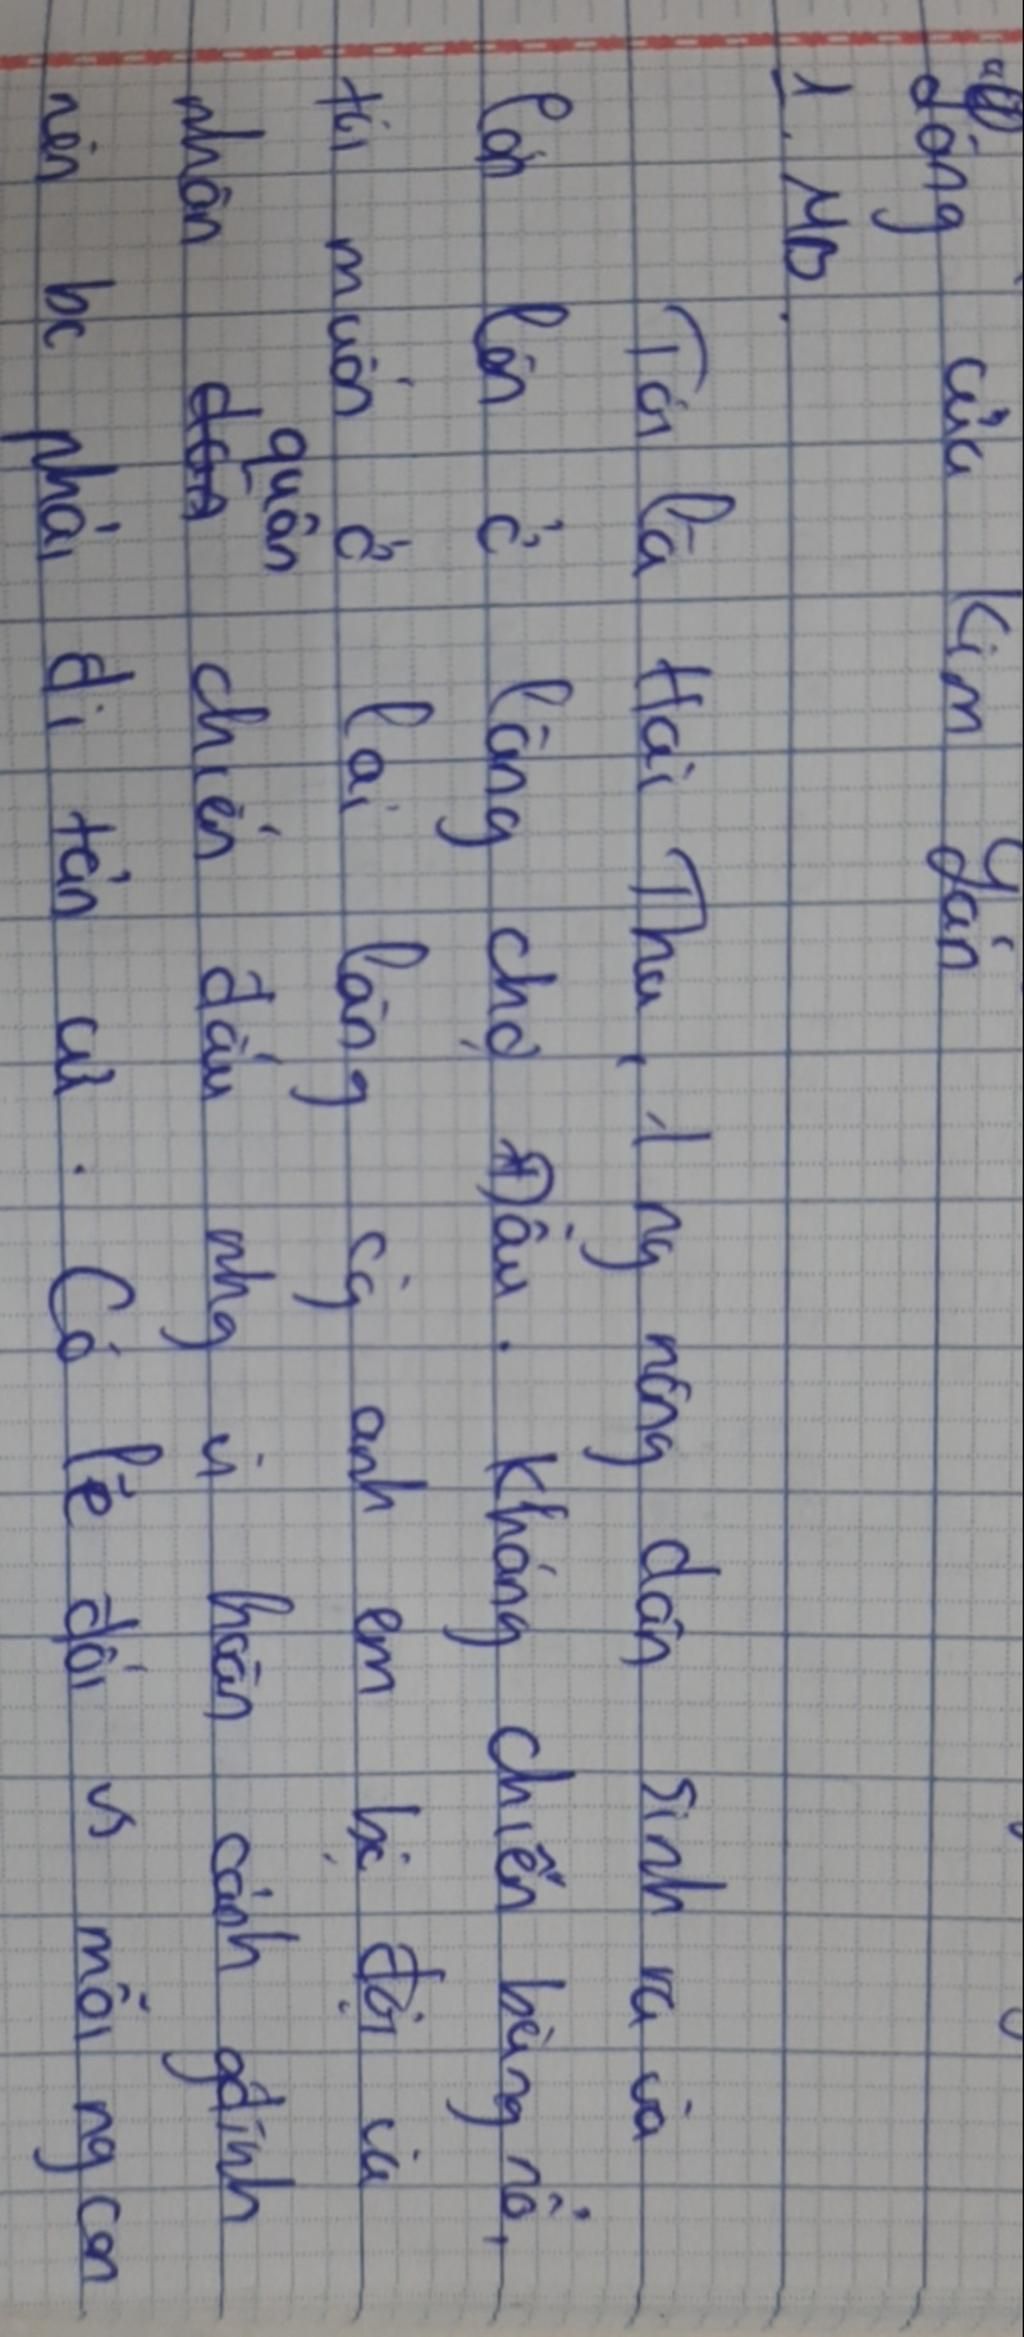 động của Kim Lân
1. MB.
Tôi là Hai Thu, 1 ng nông dân sinh ra và
lớn lên ở làng chợ Dầu. Kháng chiến bùng nổ,
tôi muốn ở lại làng cg anh em bộ đội và
nhân quân chiến đấu nhg vì hoàn cảnh gđình
nên bc phải đi tản cư. Có lẽ đối vs mỗi ng con